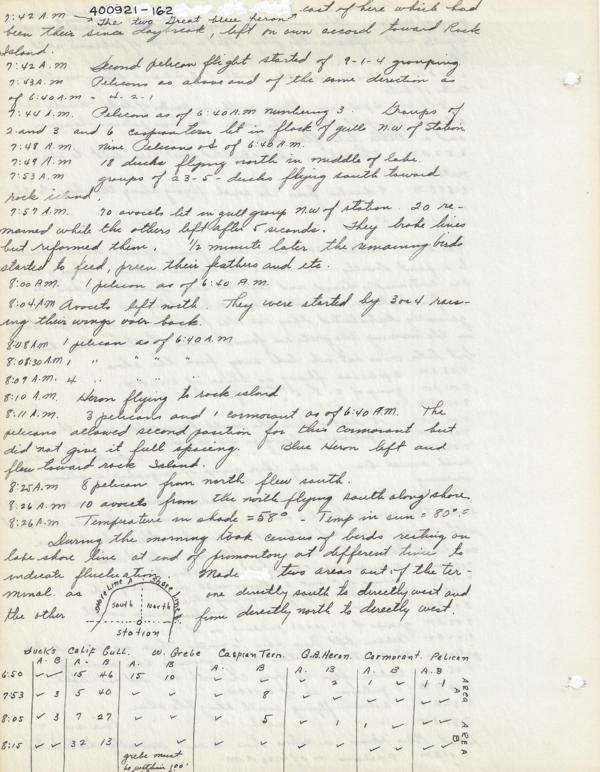 400921-162
7:42 A.M "The two Great blue heron" east of here which had
been their since daybreak, left on own accord toward Rock
Island.
7:42 A.M Second pelican flight started of 9-1-4 grouping
7:43 A.M Pelicans as above and of the same direction as
of 6:40 A.M - 4-2-1
7:44 A.M. Pelicans as of 6:40 A.M numbering 3. Groups of
2 and 3 and 6 caspian tern lit in flock of gulls N.W of station
7:48 A.M. nine Pelicans as of 6:40 A.M.
7:49 A.M 18 ducks flying north in middle of lake.
7:53 A.M groups of 23-5- ducks flying south toward
rock island.
7:57 A.M. 70 avocets let in gull group N.W of station. 20 re-
mained while the others left after 5 seconds. They broke lines
but reformed them. 1/2 minute later the remaining birds
started to feed, preen their feathers and etc.
8:00 A.M. 1 pelican as of 6:40 A.M.
8:04 A.M Avocets left north. They were started by 3 or 4 rais-
ing their wings over back.
8:08 A.M 1 pelican as of 6:40 A.M
8:08:30 A.M 1 " " " "
8:09 A.M. 4 " " " "
8:10 A.M. Heron flying to rock island
8:11 A.M. 3 pelicans and 1 cormorant as of 6:40 A.M. The
pelicans allowed second position for this cormorant but
did not give it full spacing. Blue Heron left and
flew toward rock Island.
8:25 A.M 8 pelican from north flew south.
8:26 A.M 10 avocets from the north flying south along shore
8:26 A.M Temperature in shade = 58° - Temp in sun = 80°
During the morning took census of birds resting on
lake shore line at end of promontory at different times to
indicate fluctuation. Made two areas out of the ter-
minal as one directly south to directly west and
the other from directly north to directly west.
Shore Line A Shore Line B
South North
Station
Ducks Calif Gull. W. Grebe Caspian Tern. G.B. Heron. Cormorant. Pelican
A. B A. B A. B A. B A. B A. B A. B
6:50 ✓ ✓ 15 46 15 10 ✓ ✓ ✓ 2 1 ✓ 1 1 AREA A
7:53 ✓ 3 5 40 ✓ ✓ ✓ 8 ✓ ✓ ✓ ✓ ✓ ✓
8:05 ✓ 3 7 27 ✓ ✓ ✓ 5 ✓ 1 1 ✓ ✓ ✓ AREA B
8:15 ✓ ✓ 32 13 ✓ ✓ ✓ ✓ ✓ ✓ ✓ ✓ ✓ ✓
grebe must
be within 100'